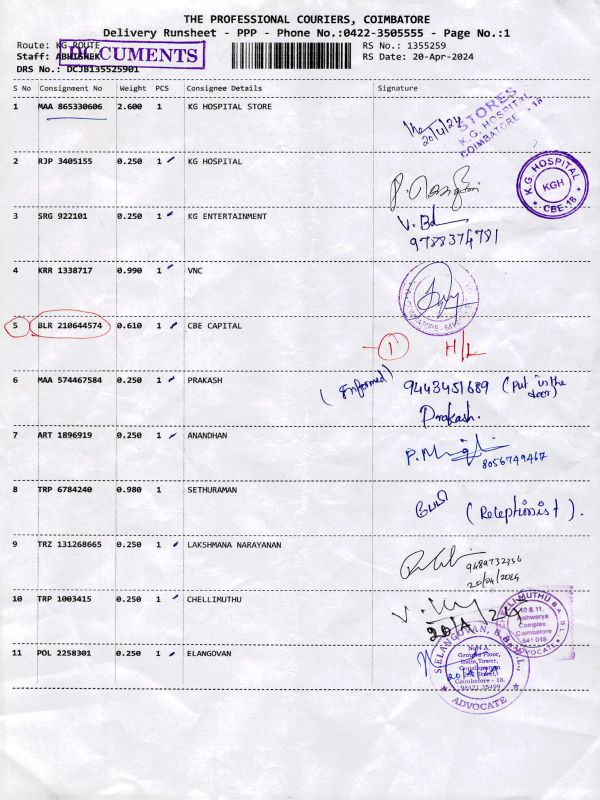 THE PROFESSIONAL COURIERS, COIMBATORE
Delivery Runsheet - PPP - Phone No.:0422-3505555 - Page No.:1
Route: KG ROUTE
DOCUMENTS
RS No.: 1355259
Staff: ABHISHEK
RS Date: 20-Apr-2024
DRS No.: DCJB135525901
S No Consignment No Weight PCS Consignee Details Signature
1 MAA 865330606 2.600 1 KG HOSPITAL STORE
20/4/24
STORES
K.G. HOSPITAL
COIMBATORE - 18
2 RJP 3405155 0.250 1 KG HOSPITAL
K.G. HOSPITAL
KGH
CBE-18
3 SRG 922101 0.250 1 KG ENTERTAINMENT
9788374781
4 KRR 1338717 0.990 1 VNC
5 BLR 210644574 0.610 1 CBE CAPITAL
1 H/L
6 MAA 574467584 0.250 1 PRAKASH
(Informed) 9443451689 (Put in the door)
Prakash.
7 ART 1896919 0.250 1 ANANDHAN
8056749467
8 TRP 6784240 0.980 1 SETHURAMAN
(Receptionist).
9 TRZ 131268665 0.250 1 LAKSHMANA NARAYANAN
9489732356
20/04/2024
10 TRP 1003415 0.250 1 CHELLIMUTHU
20/4/24
Complex,
Coimbatore
641 018
ADVOCATE
11 POL 2258301 0.250 1 ELANGOVAN
S.ELANGOVAN, B.B.A.,B.L.,
Ground Floor,
Coimbatore - 18.
ADVOCATE